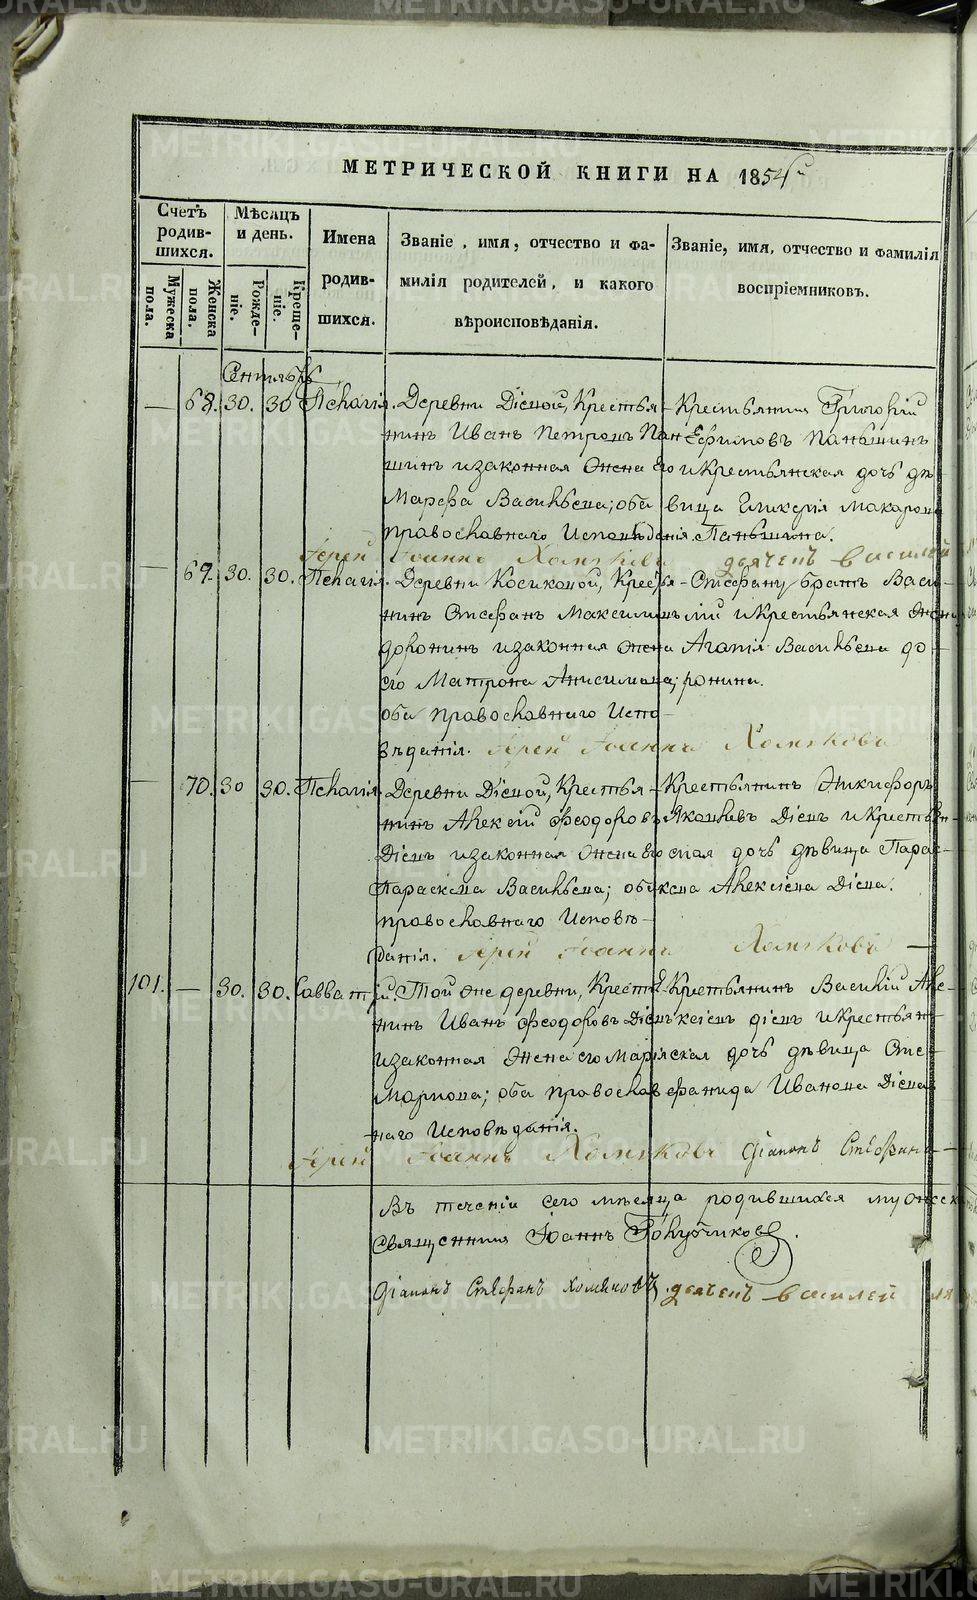 METRIKI.GASO-URAL.RU
МЕТРИЧЕСКОЙ КНИГИ НА 1854
Счетъ родив-шихся.
Мужеска пола.
Женска пола.
Мѣсяцъ и день.
Рожде-ніе.
Креще-ніе.
Имена родив-шихся.
Званіе, имя, отчество и фа-
милія родителей, и какого
вѣроисповѣданія.
Званіе, имя, отчество и фамилія
воспріемниковъ.
Сентябрь
— 68. 30. 30 Пелагія. Деревни Дѣевой, Крестья-
нинъ Иванъ Петровъ Пань-
шинъ и законная жена его
Марфа Васильева; оба
православнаго Исповѣданія.
Крестьянинъ Григорій
Ефимовъ Паньшинъ
и крестьянская дочь дѣ-
вица Гликерія Макарова
Паньшина.
Іерей Іоаннъ Хомяковъ дьячекъ Василей
— 69. 30. 30. Пелагія. Деревни Косиковой, Крестья-
нинъ Стефанъ Максимовъ
Доронинъ и законная жена
его Матрона Анисимова;
оба православнаго Испо-
вѣданія.
Стефану братъ Васи-
лій и крестьянская жена
Агапія Васильева До-
ронина.
Іерей Іоаннъ Хомяковъ
— 70. 30 30. Пелагія. Деревни Дѣевой, Крестья-
нинъ Алексѣй Феодоровъ
Дѣевъ и законная жена его
Параскева Васильева; оба
православнаго Исповѣ-
данія.
Крестьянинъ Никифоръ
Яковлевъ Дѣевъ и крестьян-
ская дочь дѣвица Парас-
кева Алексѣева Дѣева.
Іерей Іоаннъ Хомяковъ —
101. — 30. 30. Савватій. Той же деревни, Крестья-
нинъ Иванъ Феодоровъ Дѣевъ
и законная жена его Марія
Маркова; оба православ-
наго Исповѣданія.
Крестьянинъ Василій Але-
ксѣевъ Дѣевъ и крестьян-
ская дочь дѣвица Сте-
фанида Иванова Дѣева
Іерей Іоаннъ Хомяковъ діаконъ Стефанъ —
Въ теченіи сего мѣсяца родившихся мужеск
Священникъ Іоаннъ Голубчиковъ.
Діаконъ Стефанъ Хомяковъ. дьячекъ Василей